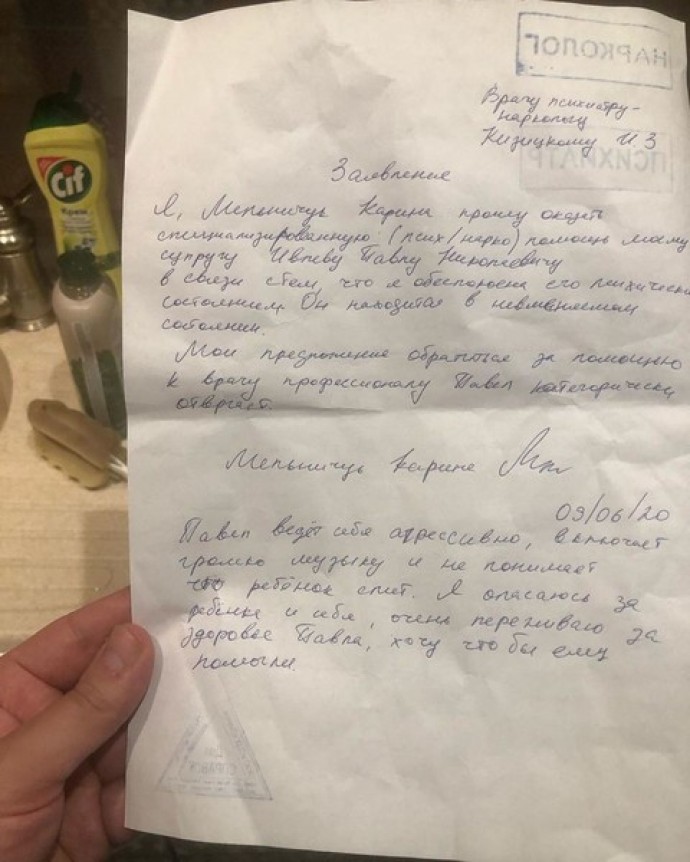 НАРКОЛОГ
Врачу психиатру-
наркологу
Кизицкому И.З
ПСИХИАТР
Заявление
Я, Мельничук Карина прошу оказать
специализированную (псих/нарко) помощь моему
супругу Ивлеву Павлу Николаевичу
в связи с тем, что я обеспокоена его психическ
состоянием. Он находится в невменяемом
состоянии.
Мои предложение обратиться за помощью
к врачу профессионалу Павел категорически
отвергает.
Мельничук Карина
09/06/20
Павел ведёт себя агрессивно, включает
громко музыку и не понимает
что ребёнок спит. Я опасаюсь за
ребёнка и себя, очень переживаю за
здоровье Павла, хочу что бы ему
помогли.
Cif
Крем